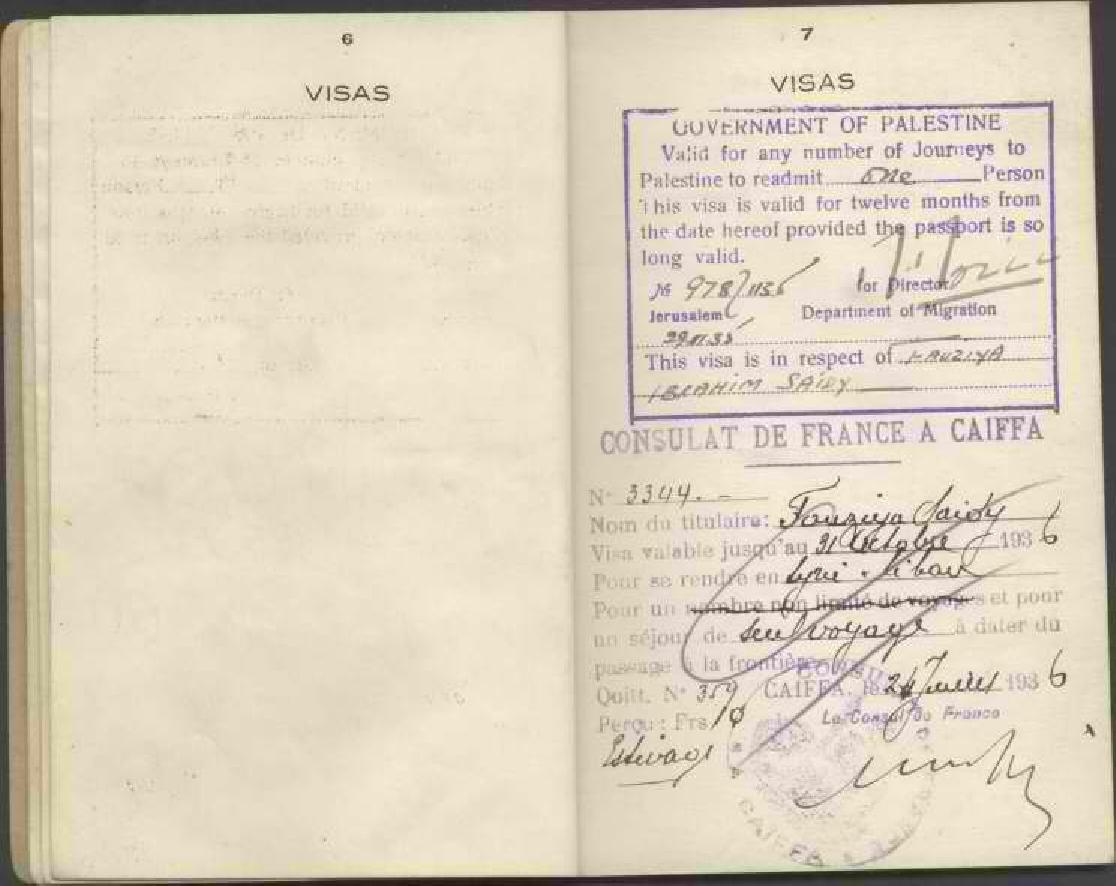 6
VISAS
7
VISAS
GOVERNMENT OF PALESTINE
Valid for any number of Journeys to
Palestine to readmit one Person
This visa is valid for twelve months from
the date hereof provided the passport is so
long valid.
№ 978/1135 for Director
Jerusalem Department of Migration
29.11.35
This visa is in respect of FAUZIYA
IBRAHIM SAIDY
CONSULAT DE FRANCE A CAIFFA
N° 3344.-
Nom du titulaire: Fouziya Saidy
Visa valable jusqu'au 31 Octobre 1936
Pour se rendre en Syrie-Liban
Pour un nombre non limité de voyages et pour
un séjour de seul voyage à dater du
passage à la frontière
Quitt. N° 359 CAIFFA, le 24 Juillet 1936
Perçu: Frs 10 Le Consul de France
Estivage
CONSU
CAIFFA